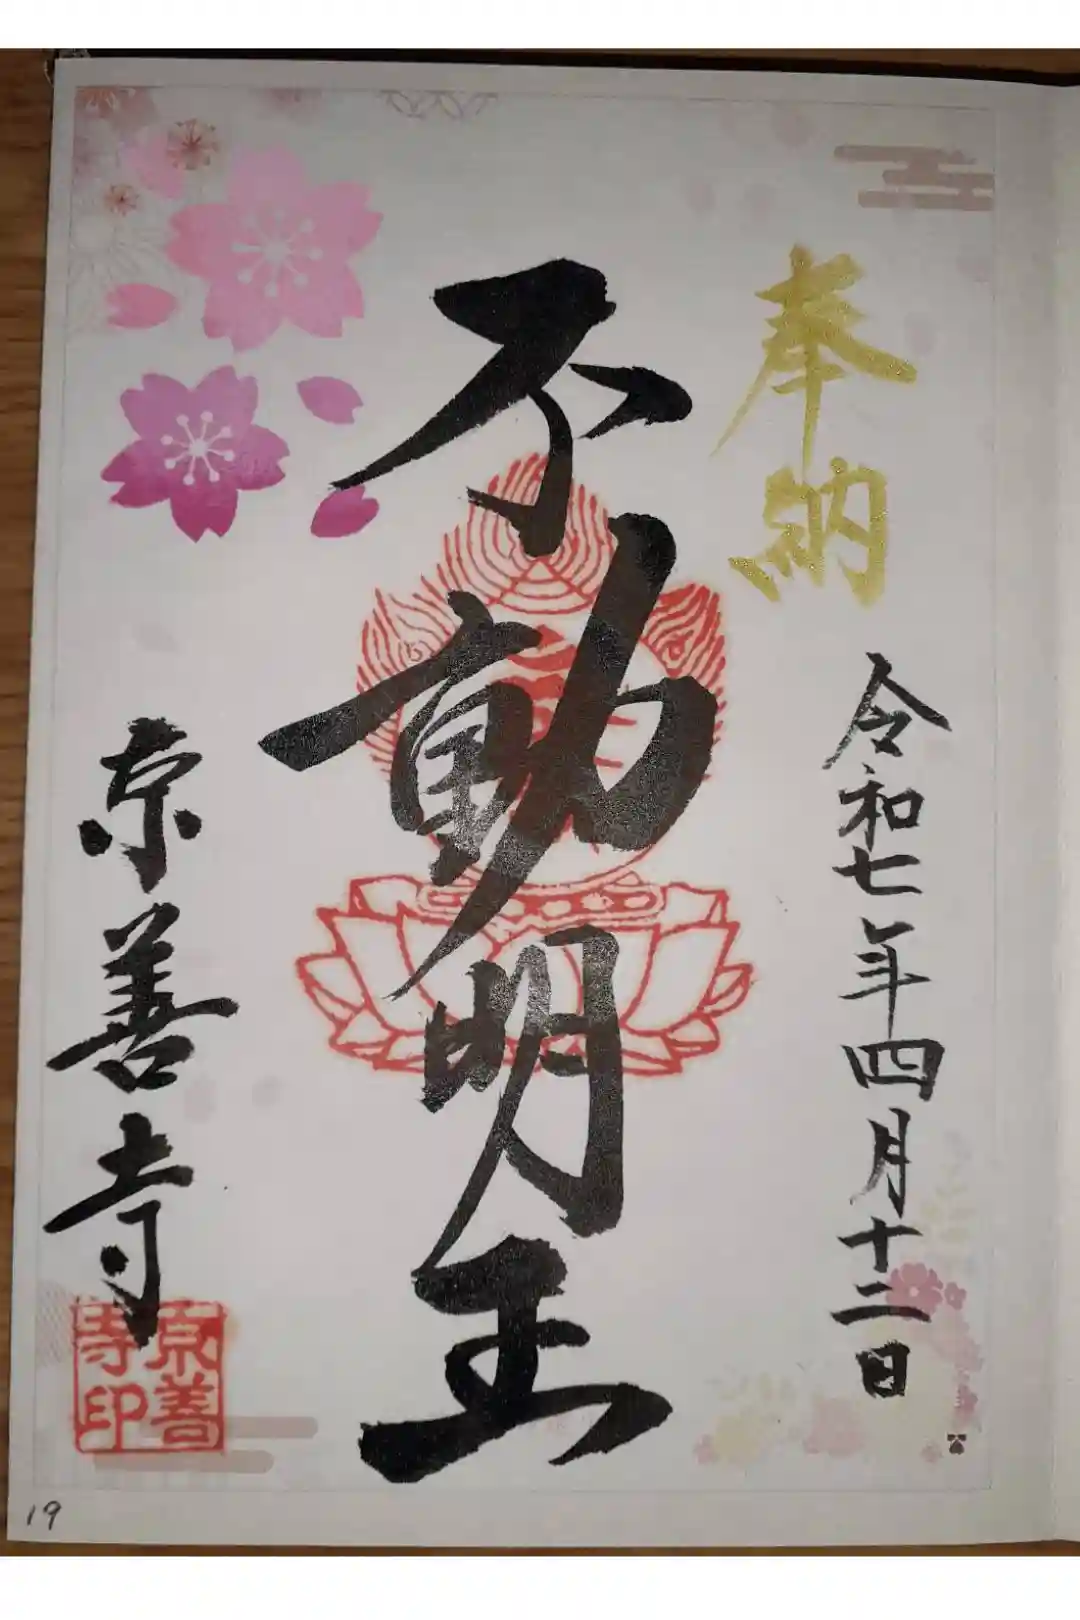 奉納
令和七年四月十二日
不動明王
京善寺
京善
寺印
19